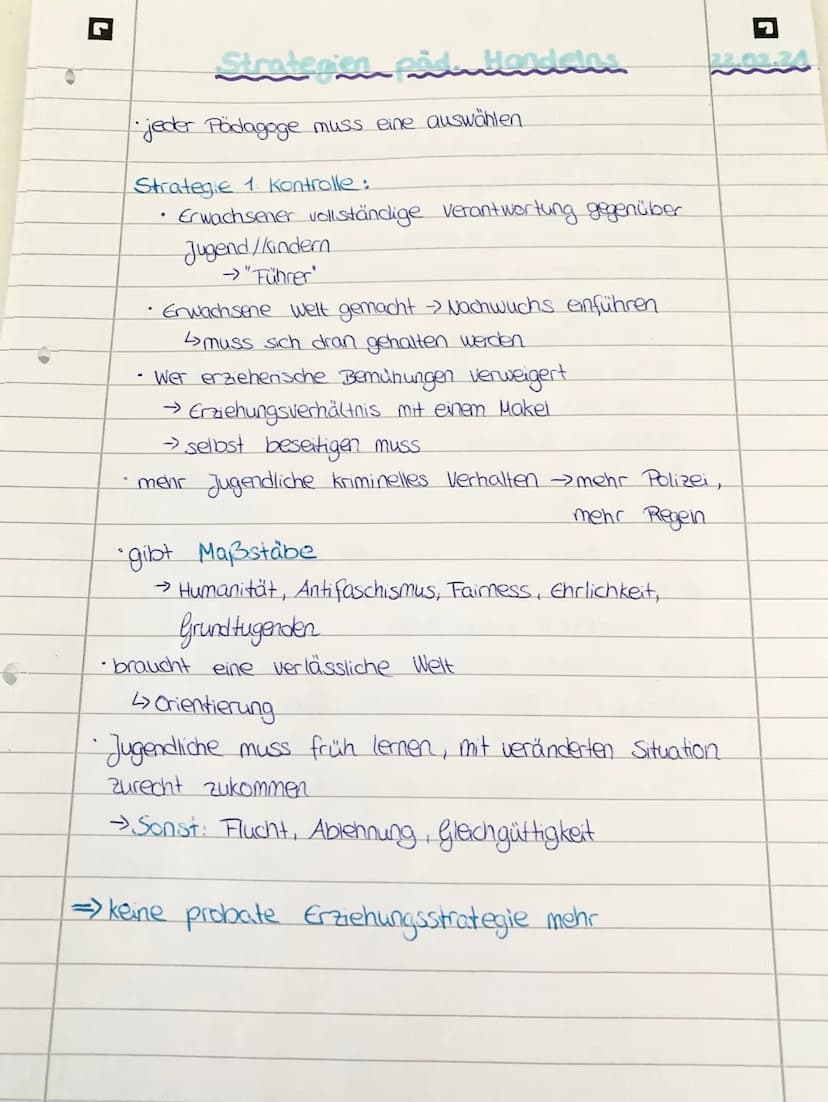 Strategien päd. Handelns 22.02.21
· jeder Pädagoge muss eine auswählen
Strategie 1. Kontrolle:
· Erwachsener vollständige Verantwortung gegenüber
Jugend/kindern
→ "Führer"
· Erwachsene Welt gemacht → Nachwuchs einführen
↳ muss sich dran gehalten werden
· Wer erzieherische Bemühungen verweigert
→ Erziehungsverhältnis mit einem Makel
→ selbst beseitigen muss
· mehr Jugendliche kriminelles Verhalten → mehr Polizei,
mehr Regeln
· gibt Maßstäbe
→ Humanität, Antifaschismus, Fairness, Ehrlichkeit,
Grundtugenden
· braucht eine verlässliche Welt
↳ Orientierung
· Jugendliche muss früh lernen, mit veränderten Situation
zurecht zukommen
→ Sonst: Flucht, Ablehnung, Gleichgültigkeit
⇒ keine probate Erziehungsstrategie mehr